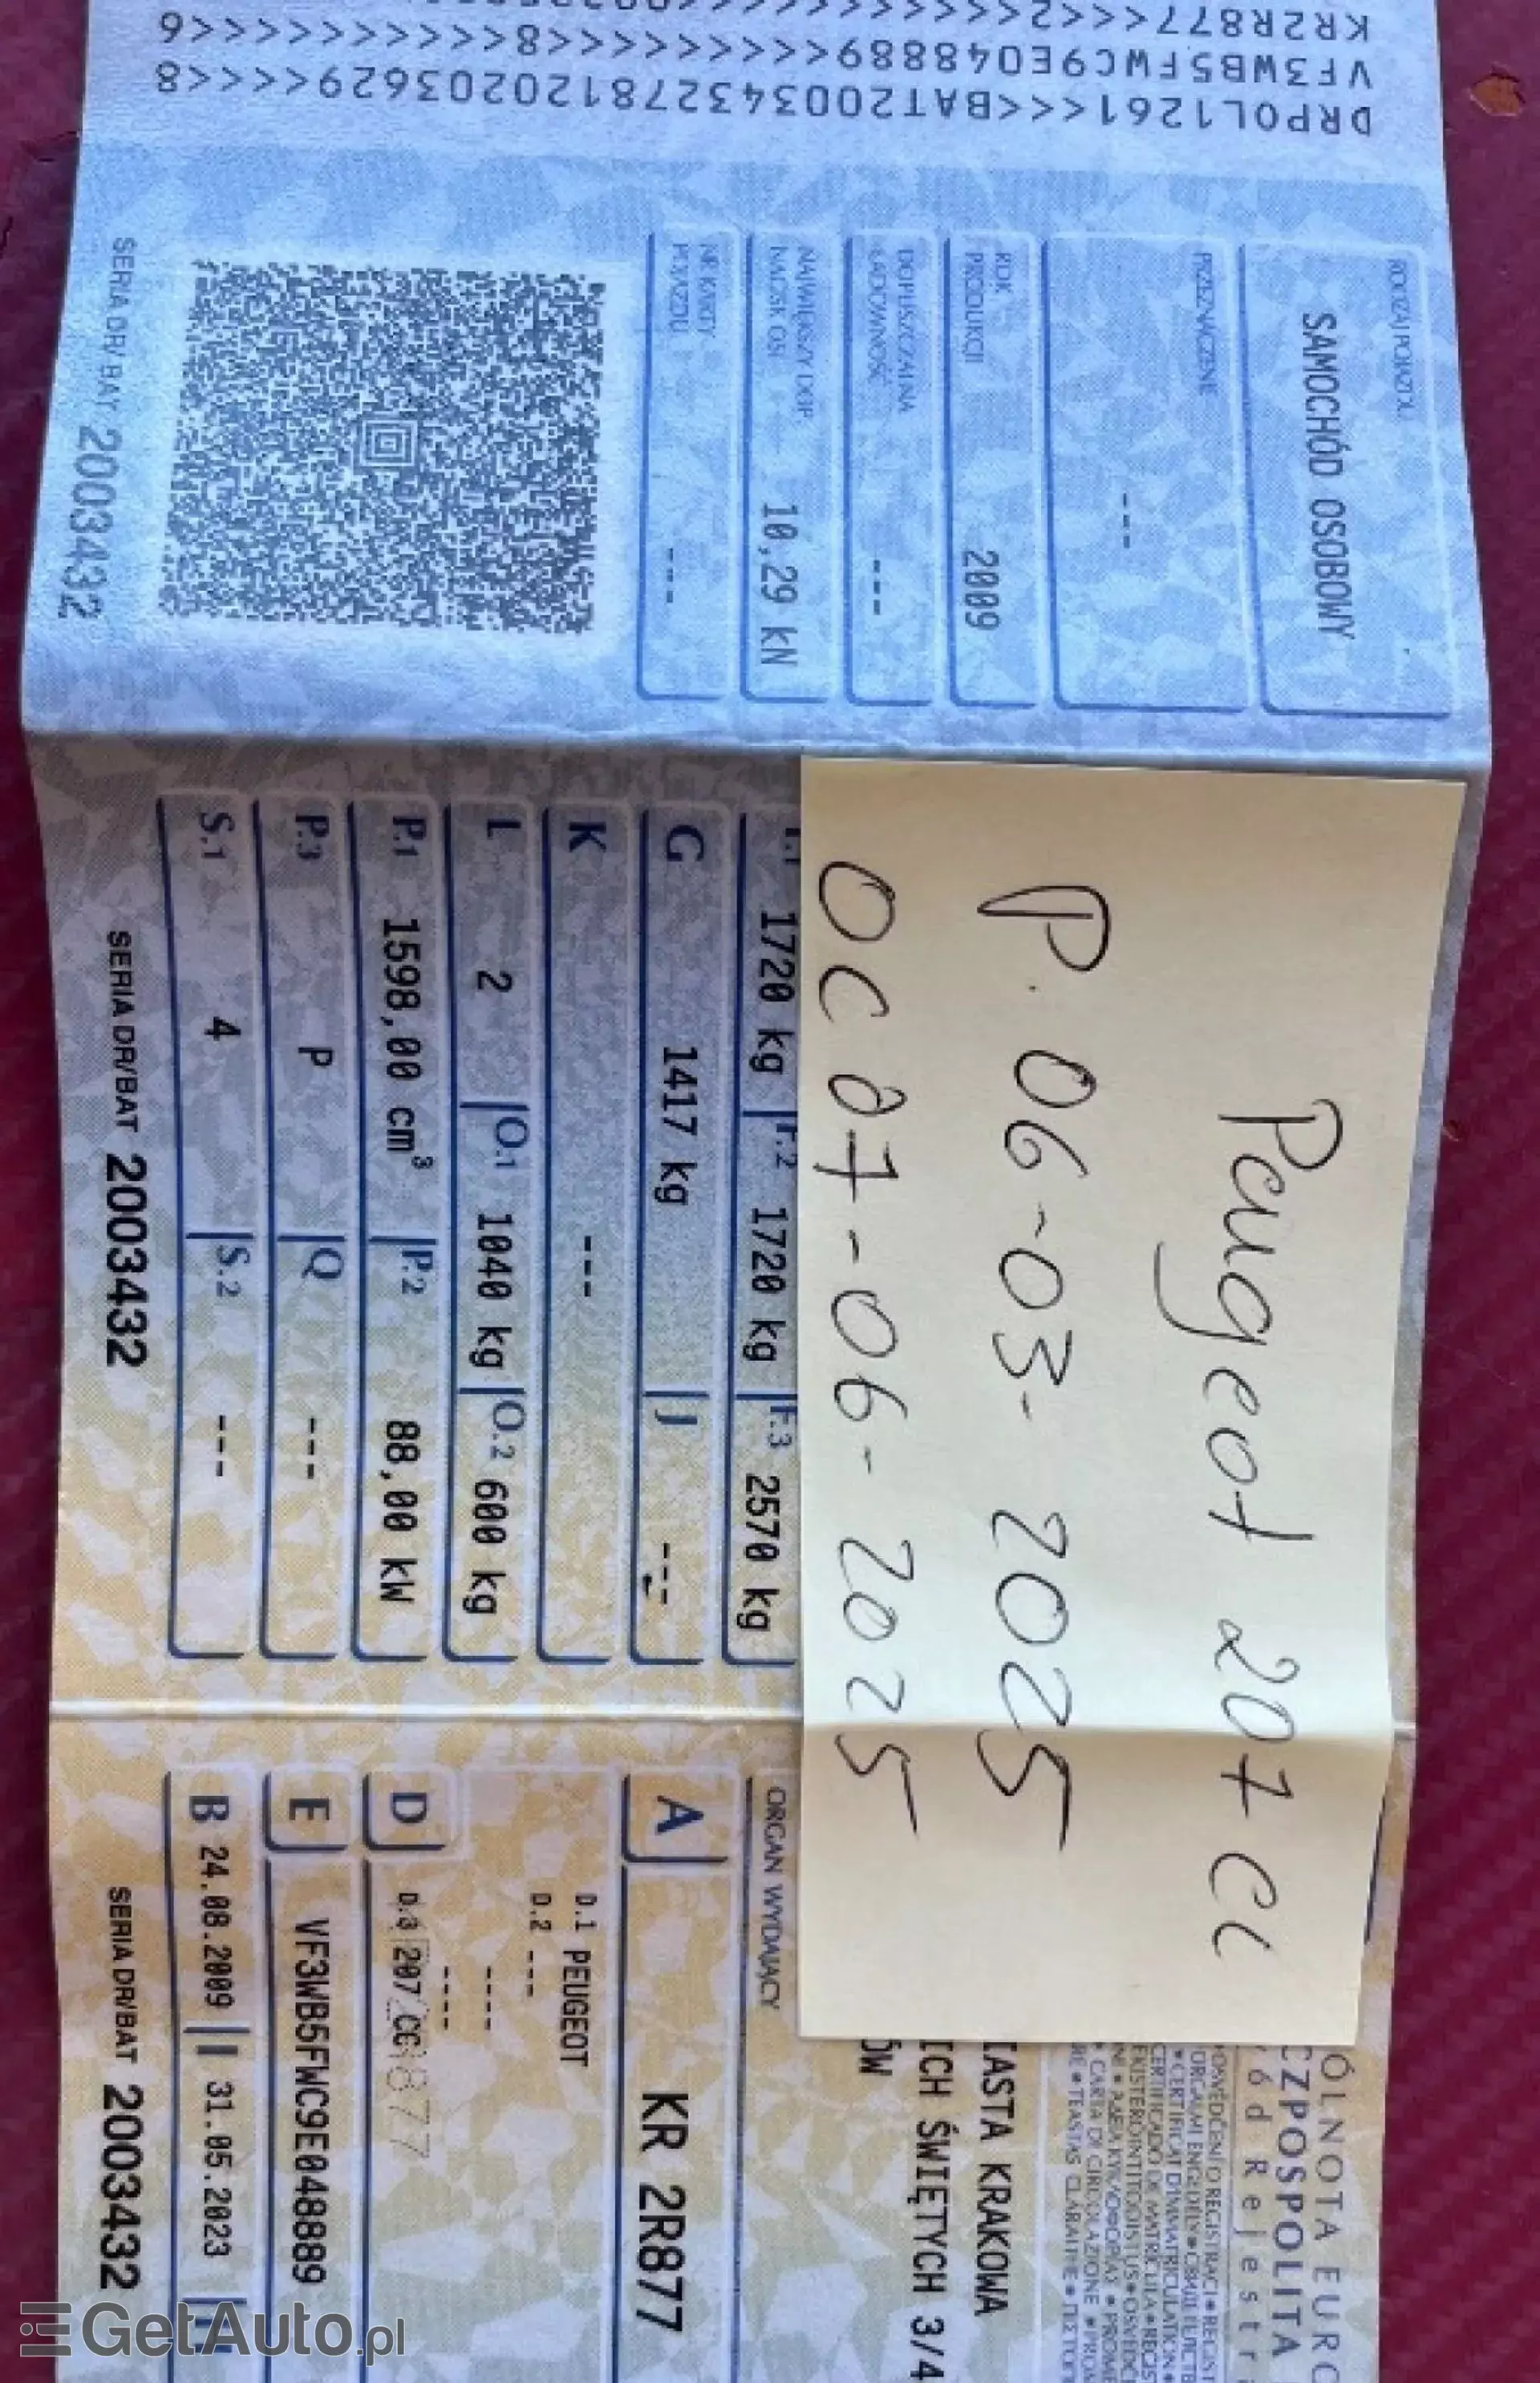 DRPOL1261<<<BAT200343278120203629<<<<<8
VF3WB5FWC9E048889<<<<<<<<8<<<<<<<<<<<<6
KR2R877<<<2<<<<<<<<<
RODZAJ POJAZDU
SAMOCHÓD OSOBOWY
PRZEZNACZENIE
---
ROK
PRODUKCJI
2009
DOPUSZCZALNA
ŁADOWNOŚĆ
---
NAJWIĘKSZY DOP.
NACISK OSI
10,29 kN
NR KARTY
POJAZDU
---
SERIA DR/ BAT 2003432
Peugeot 207 CC
P. 06-03-2025
OC 07-06-2025
1720 kg F.2 1720 kg F.3 2570 kg
G 1417 kg J ---
K ---
L 2 O.1 1040 kg O.2 600 kg
P.1 1598,00 cm³ P.2 88,00 kW
P.3 P Q ---
S.1 4 S.2 ---
SERIA DR/BAT 2003432
ÓLNOTA EURO
CZPOSPOLITA
ód Rejestr
IASTA KRAKOWA
ICH ŚWIĘTYCH 3/4
ÓW
ORGAN WYDAJĄCY
A KR 2R877
D.1 PEUGEOT
D.2 ---
----
----
D D.3 207 CC
E VF3WB5FWC9E048889
B 24.08.2009 I 31.05.2023 H
SERIA DR/BAT 2003432
GetAuto.pl